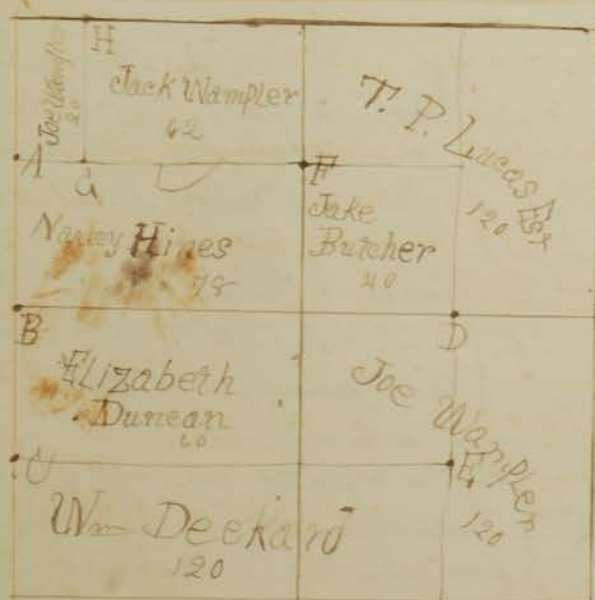 H
Joe Wampler
20
Jack Wampler
62
T. P. Lucas Est
120
A
G
F
Nancy Hines
78
Jake
Butcher
40
B
D
Elizabeth
Duncan
60
Joe Wampler
120
C
E
Wm Deckard
120